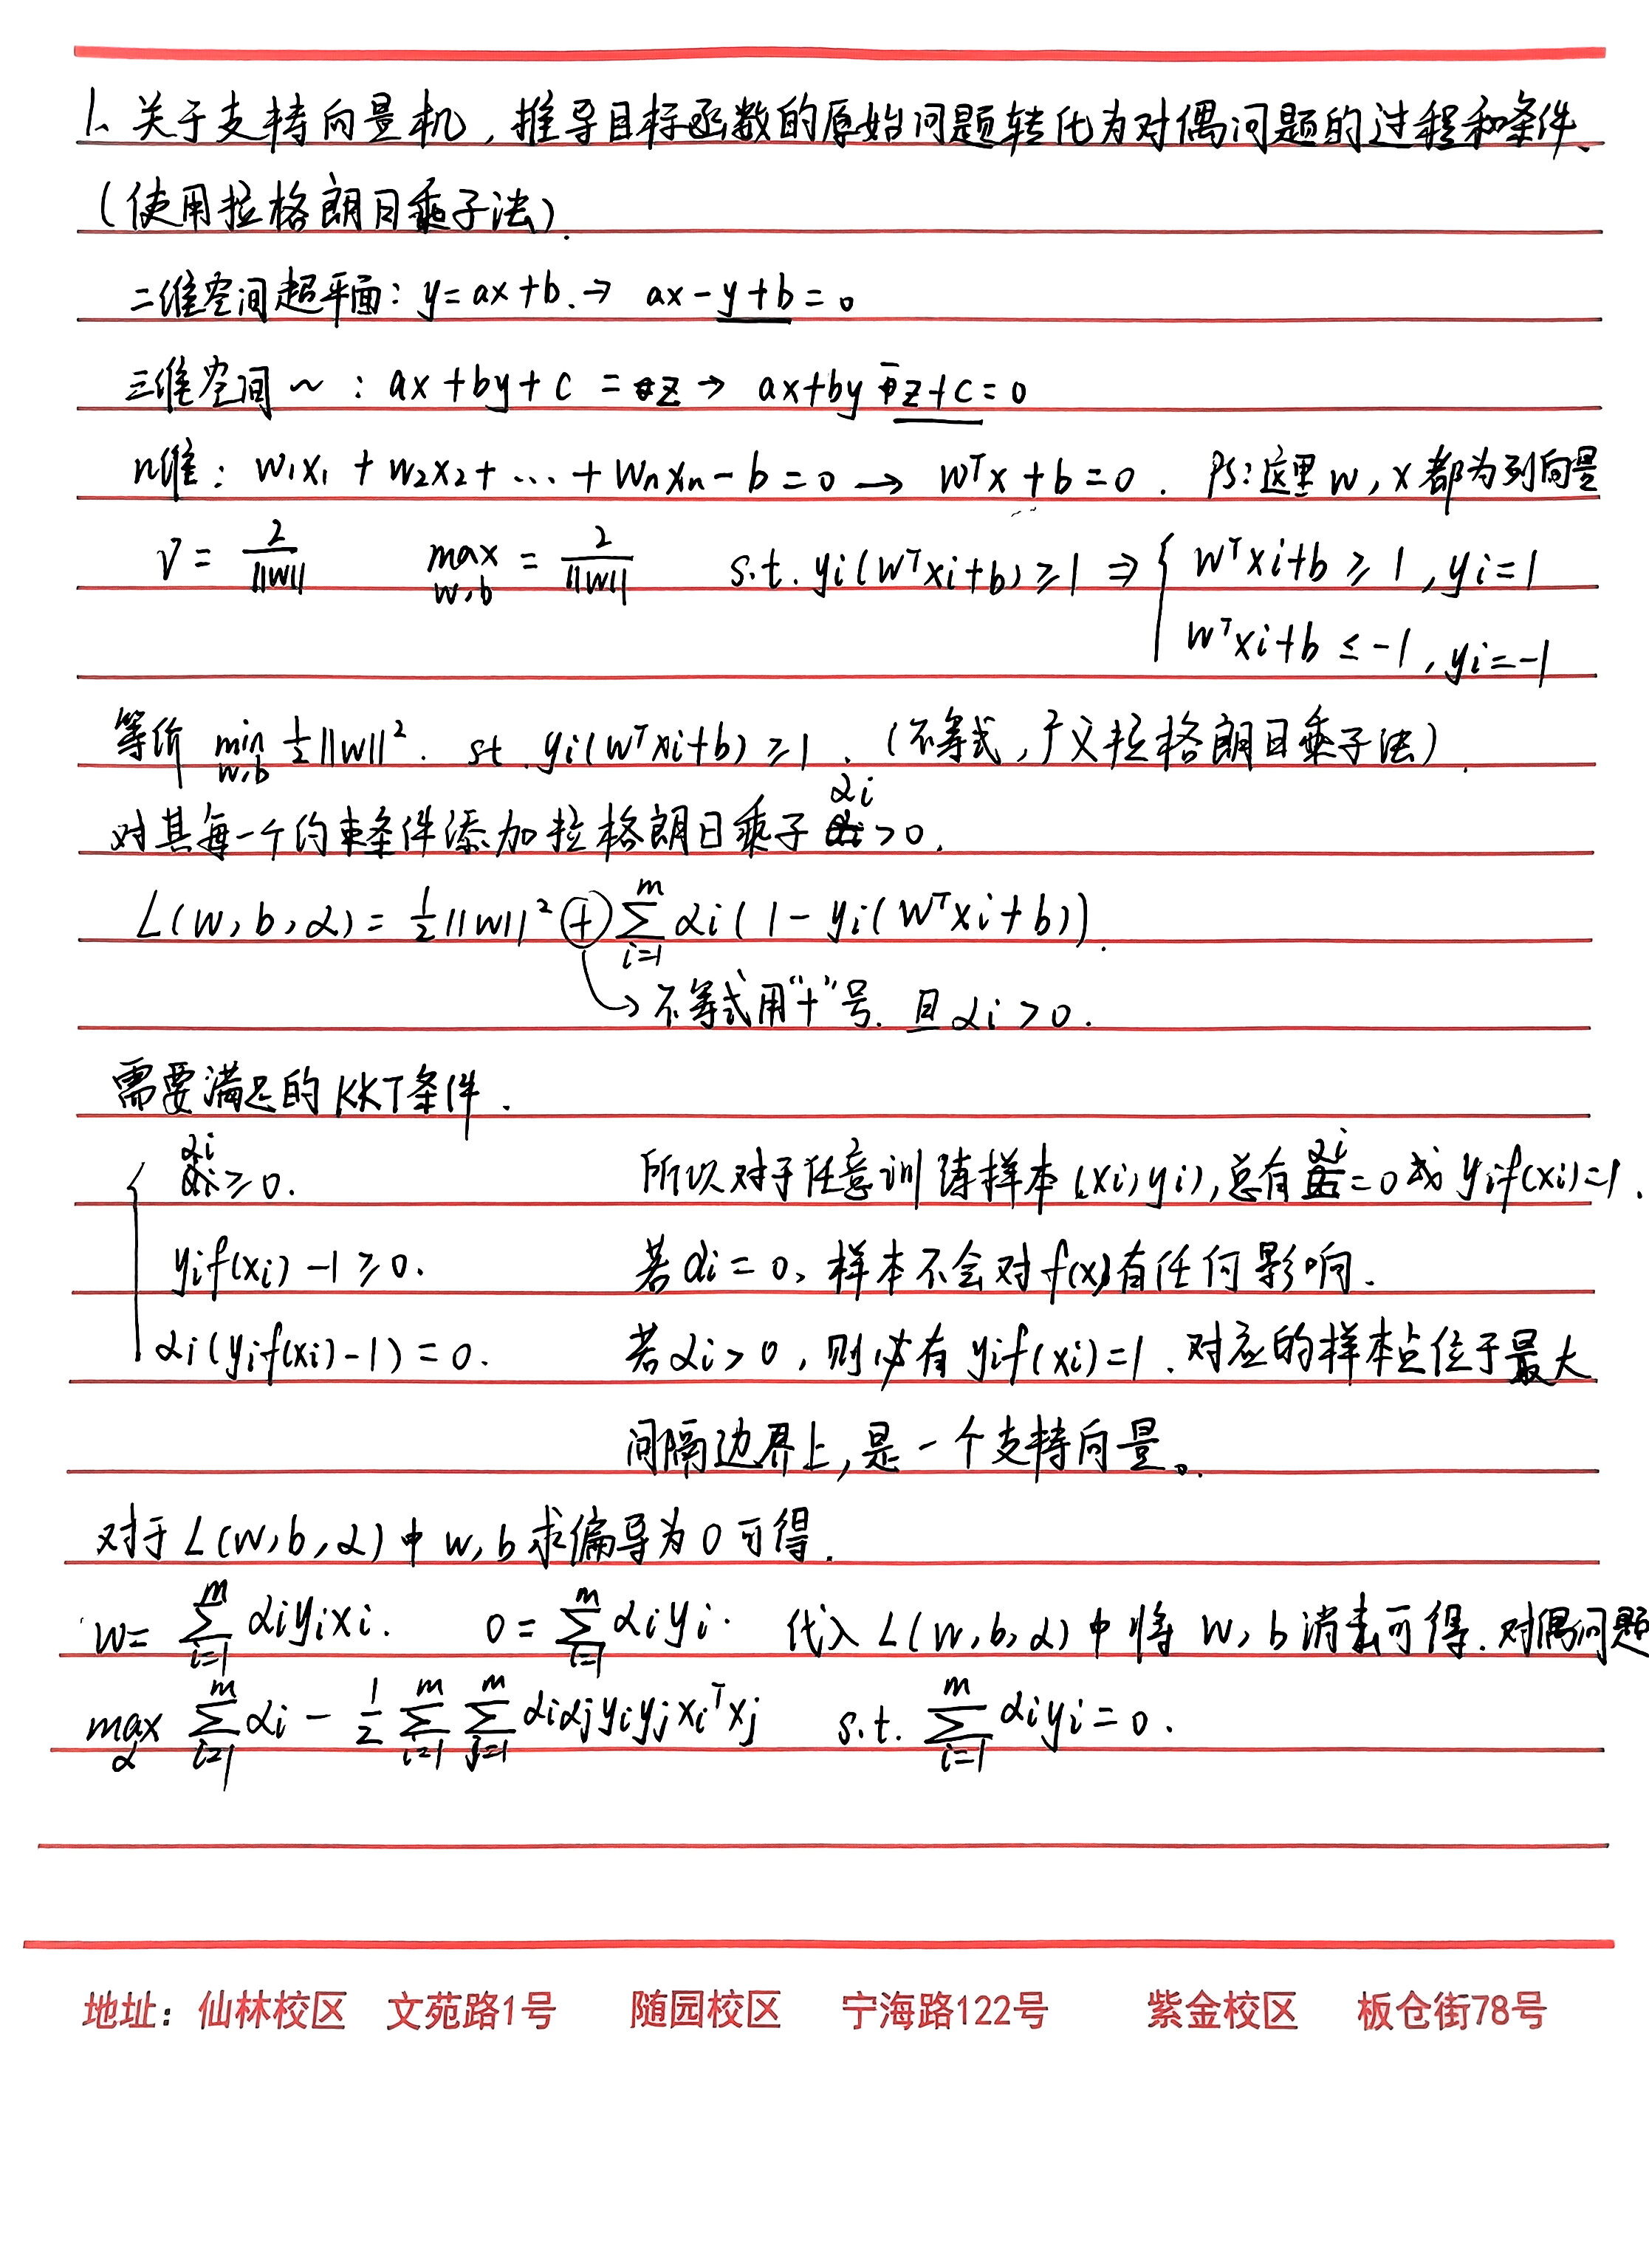 1、关于支持向量机，推导目标函数的原始问题转化为对偶问题的过程和条件、
（使用拉格朗日乘子法）.
二维空间超平面：y=ax+b.→ ax-y+b=0
三维空间～：ax+by+c=z→ ax+by-z+c=0
n维：w₁x₁+w₂x₂+…+wₙxₙ-b=0 → wᵀx+b=0. PS:这里w,x都为列向量
γ=2/||w|| max_{w,b}=2/||w|| s.t. yi(wᵀxi+b)≥1 ⇒ { wᵀxi+b≥1,yi=1
wᵀxi+b≤-1,yi=-1
等价 min_{w,b} ½||w||². st. yi(wᵀxi+b)≥1.（不等式，广义拉格朗日乘子法）.
对其每一个约束条件添加拉格朗日乘子 αi>0.
L(w,b,α)=½||w||²+∑_{i=1}^{m} αi(1-yi(wᵀxi+b)).
→不等式用“+”号.且αi>0.
需要满足的KKT条件.
{ αi≥0. 所以对于任意训练样本(xi,yi),总有αi=0或yif(xi)=1.
yif(xi)-1≥0. 若αi=0,样本不会对f(x)有任何影响.
αi(yif(xi)-1)=0. 若αi>0,则必有yif(xi)=1.对应的样本点位于最大
间隔边界上,是一个支持向量。
对于L(w,b,α)中w,b求偏导为0可得.
w=∑_{i=1}^{m} αiyixi. 0=∑_{i=1}^{m} αiyi. 代入L(w,b,α)中将w,b消去可得.对偶问题
max_α ∑_{i=1}^{m} αi-½∑_{i=1}^{m}∑_{j=1}^{m} αiαjyiyjxiᵀxj s.t. ∑_{i=1}^{m} αiyi=0.
地址：仙林校区 文苑路1号 随园校区 宁海路122号 紫金校区 板仓街78号